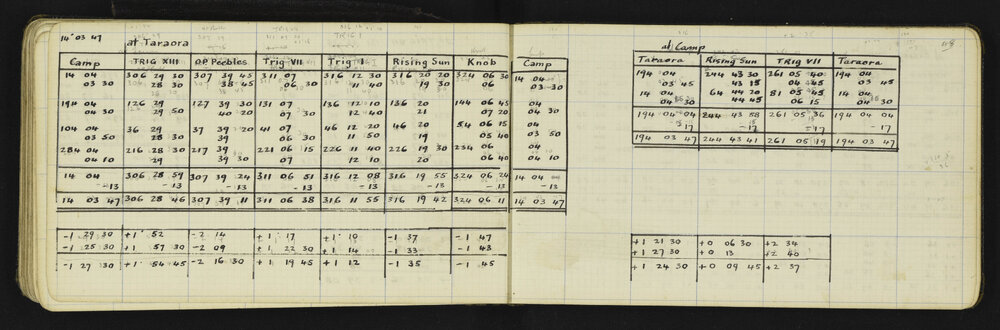 14° 03 47
at Taraora
Camp TRIG XIII O.P Peebles Trig VII Trig I Rising Sun Knob Camp
14 04 306 29 30 307 39 45 311 07 316 12 30 316 20 20 324 06 30 14 04
03 30 28 30 38 45 06 30 11 40 19 30 06 03 30
194 04 126 29 127 39 30 131 07 136 12 10 136 20 144 06 45 04
04 30 29 50 40 20 07 30 12 40 21 07 20 04 30
104 04 36 29 37 39 20 41 07 46 12 20 46 20 54 06 15 04
03 50 28 30 39 06 30 11 50 19 05 40 03 50
284 04 216 28 30 217 39 221 06 15 226 11 40 226 19 30 234 06 04
04 10 29 39 30 07 12 10 20 06 40 04 10
14 04 306 28 59 307 39 24 311 06 51 316 12 08 316 19 55 324 06 24 14 04
-13 -13 -13 -13 -13 -13 -13 -13
14 03 47 306 28 46 307 39 11 311 06 38 316 11 55 316 19 42 324 06 11 14 03 47
-1 29 30 +1 52 -2 14 +1 17 +1 10 -1 37 -1 47
-1 25 30 +1 57 30 -2 09 +1 22 30 +1 14 -1 33 -1 43
-1 27 30 +1 54 45 -2 16 30 +1 19 45 +1 12 -1 35 -1 45
48
at Camp
Taraora Rising Sun TRIG VII Taraora
194 04 244 43 30 261 05 40 194 04
03 45 43 15 04 45 03 45
14 04 64 44 20 81 05 45 14 04
04 30 44 45 06 15 04 30
194 04 04 244 43 58 261 05 36 194 04 04
-17 -17 -17 -17
194 03 47 244 43 41 261 05 19 194 03 47
+1 21 30 +0 06 30 +2 34
+1 27 30 +0 13 +2 40
+1 24 30 +0 09 45 +2 37